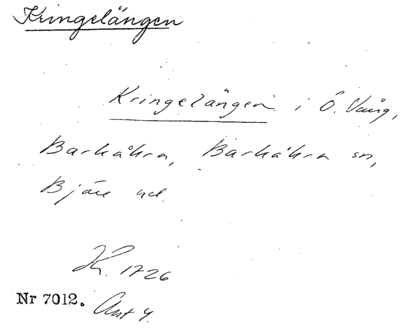 Kringelängen
Kringelängen i Ö. Vång,
Barkåkra, Barkåkra sn,
Bjäre hd.
Kr. 1726
Nr 7012. Ant 4.